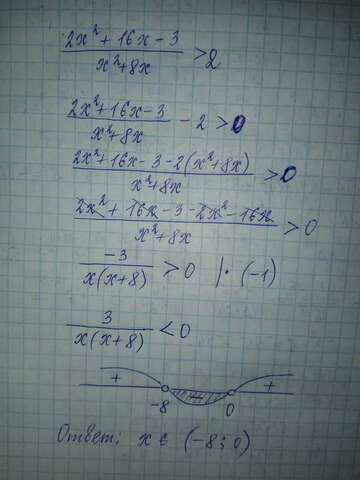 (2x² + 16x - 3)/(x² + 8x) > 2
(2x² + 16x - 3)/(x² + 8x) - 2 > 0
(2x² + 16x - 3 - 2(x² + 8x))/(x² + 8x) > 0
(2x² + 16x - 3 - 2x² - 16x)/(x² + 8x) > 0
-3/(x(x+8)) > 0 | · (-1)
3/(x(x+8)) < 0
+ − +
-8 0
Ответ: x ∈ (-8; 0)